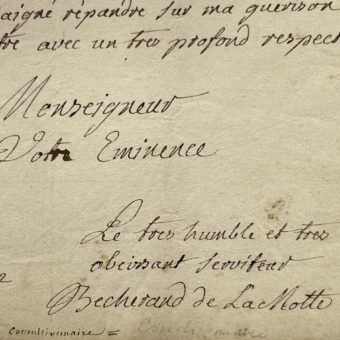 daigné répandre sur ma guerison
tre avec un tres profond respect
Monseigneur
Votre Eminence
Le tres humble et tres
obeissant serviteur
Becherand de LaMotte
2
Convulsionnaire =